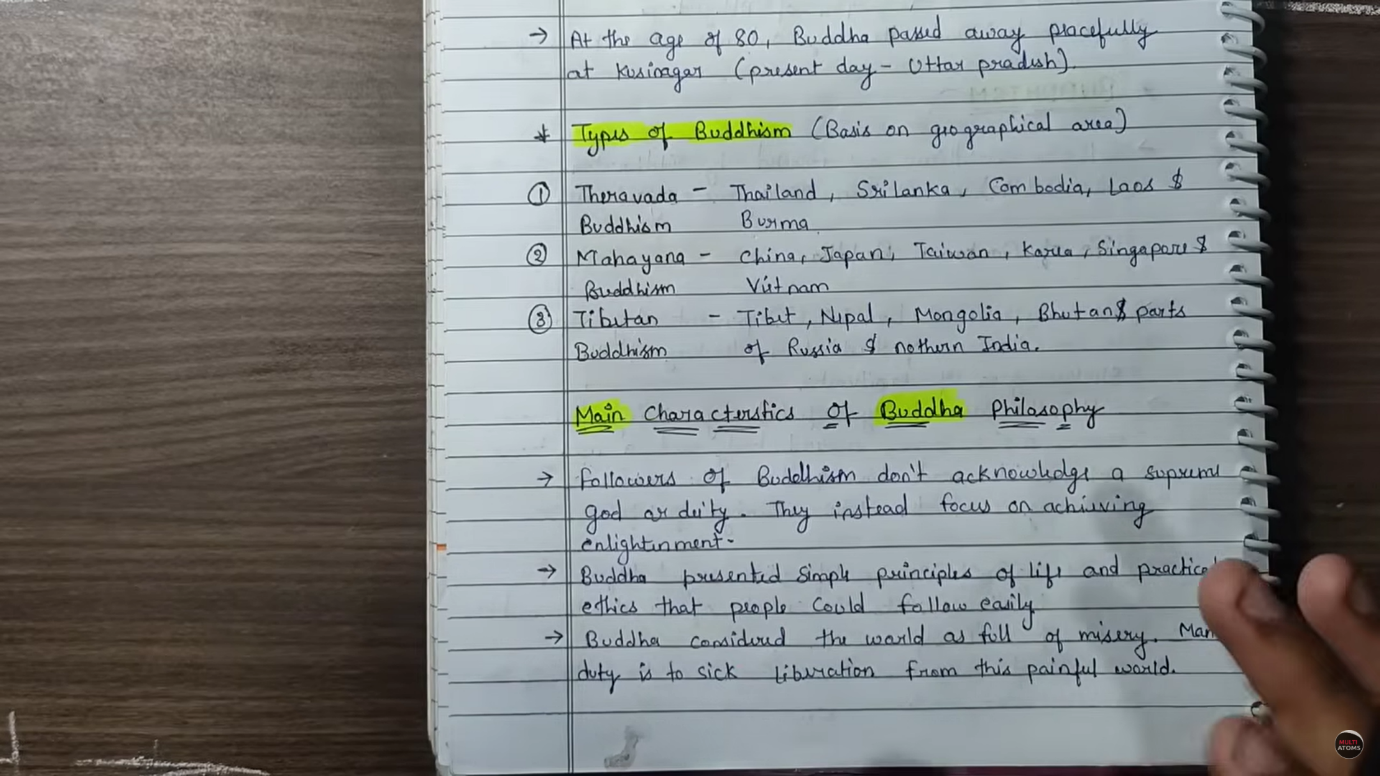 → At the age of 80, Buddha passed away peacefully
at Kusinagar (present day - Uttar pradesh).
* Types of Buddhism (Basis on geographical area)
① Theravada - Thailand, Srilanka, Combodia, Laos &
Buddhism Burma
② Mahayana - China, Japan, Taiwan, Korea, Singapore &
Buddhism Vietnam
③ Tibetan - Tibet, Nepal, Mongolia, Bhutan & parts
Buddhism of Russia & nothern India.
Main Characterstics of Buddha Philosophy
→ Followers of Buddhism don't acknowledge a supreme
god or deity. They instead focus on achieving
enlightenment.
→ Buddha presented simple principles of life and practical
ethics that people could follow easily
→ Buddha considered the world as full of misery. Man
duty is to sick liberation from this painful world.
MULTI
ATOMS